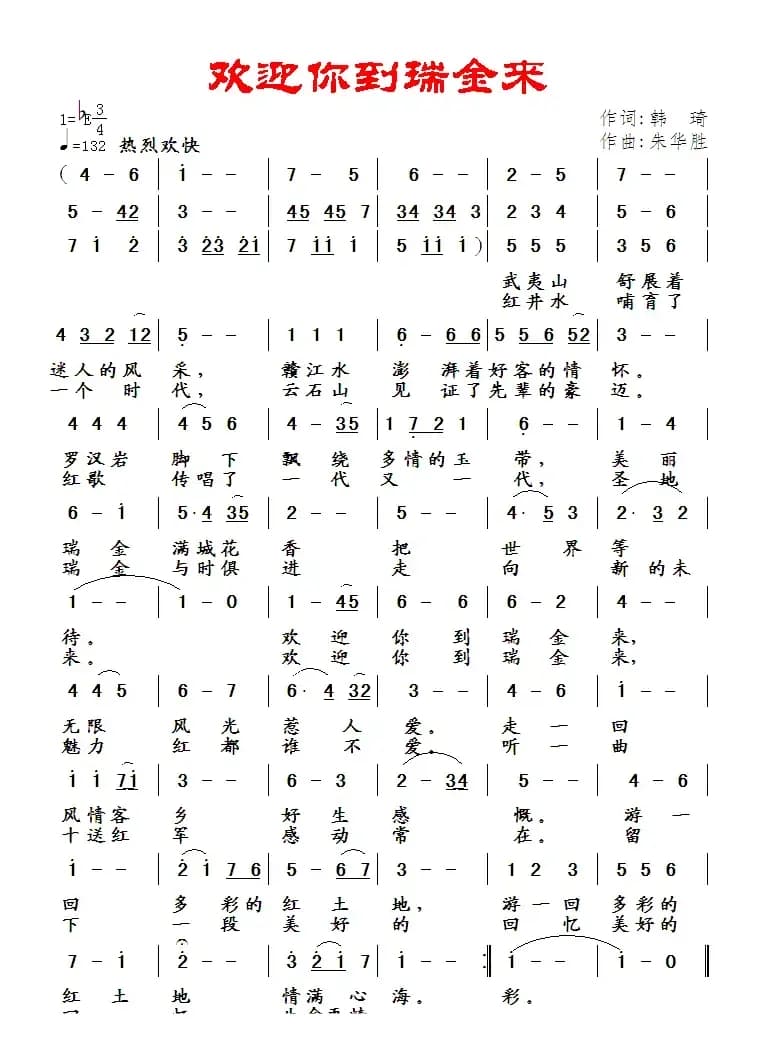 欢迎你到瑞金来
1=♭E 3/4
作词:韩 琦
♩=132 热烈欢快
作曲:朱华胜
( 4 – 6 | i – – | 7 – 5 | 6 – – | 2 – 5 | 7 – – |
5 – 42 | 3 – – | 45 45 7 | 34 34 3 | 2 3 4 | 5 – 6 |
7 i 2 | 3 23 21 | 7 ii i | 5 ii i ) | 5 5 5 | 3 5 6 |
武夷山 舒展着
红井水 哺育了
4 3 2 12 | 5 – – | 1 1 1 | 6 – 66 | 5 5 6 52 | 3 – – |
迷人的风 采, 赣江水 澎 湃着好客的情 怀。
一个 时 代, 云石山 见 证了先辈的豪 迈。
4 4 4 | 4 5 6 | 4 – 35 | 1 7 2 1 | 6 – – | 1 – 4 |
罗汉岩 脚 下 飘 绕 多情的玉 带, 美 丽
红歌 传唱了 一 代 又 一 代, 圣 地
6 – i | 5· 4 35 | 2 – – | 5 – – | 4· 5 3 | 2· 3 2 |
瑞 金 满城花 香 把 世 界 等
瑞 金 与时俱 进 走 向 新 的未
1 – – | 1 – 0 | 1 – 45 | 6 – 6 | 6 – 2 | 4 – – |
待。 欢 迎 你 到 瑞 金 来,
来。 欢 迎 你 到 瑞 金 来,
4 4 5 | 6 – 7 | 6· 4 32 | 3 – – | 4 – 6 | i – – |
无限 风 光 惹 人 爱。 走 一 回
魅力 红 都 谁 不 爱。 听 一 曲
i i 7i | 3 – – | 6 – 3 | 2 – 34 | 5 – – | 4 – 6 |
风情客 乡 好 生 感 慨。 游 一
十送红 军 感 动 常 在。 留
i – – | 2 i 7 6 | 5 – 6 7 | 3 – – | 1 2 3 | 5 5 6 |
回 多 彩的 红 土 地, 游一回 多彩的
下 一段 美 好 的 回 忆 美好的
7 – i | 2 – – | 3 2 i 7 | i – – :| i – – | i – 0 |
红 土 地 情满 心 海。 彩。